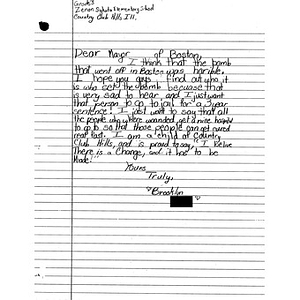 Grade 3
Zenon Sykuta Elementary School
Country Club Hills Ill,
Dear Mayor of Boston,
I think that the bomb
that went off in Boston was horible.
I hope you guys find out who it
is who set the bomb becuase that
is very sad to hear, and I just want
that person to go to jail for a 3 year
sentence! I just want to say that all
the people who where wounded get a nice hospital
to go to so that those people can get cured
real fast. I am a child of Country
Club Hills, and is proud to say, "I Belive
There is a Change, and it has to be
Made!"
Yours
Truly,
Brooklin